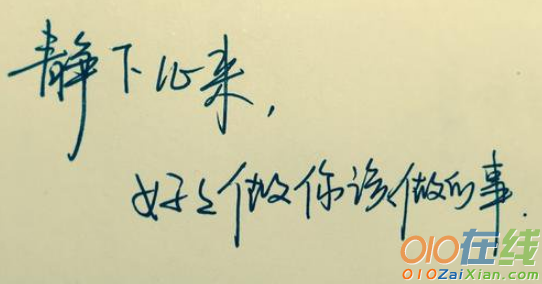 静下心来,
好好做你该做的事.
010在线
010ZaiXian.com